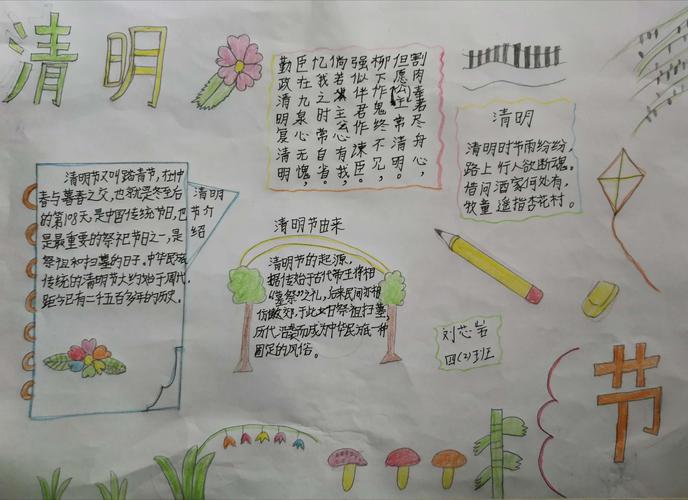 清明
割肉奉君尽丹心，
但愿主公常清明。
柳下作鬼终不见，
强似伴君作谏臣。
倘若主公心有我，
忆我之时常自省。
臣在九泉心无愧，
勤政清明复清明。
清明
清明时节雨纷纷，
路上行人欲断魂。
借问酒家何处有，
牧童遥指杏花村。
清明节又叫踏青节，在仲
春与暮春之交，也就是冬至后
的第108天，是中国传统节日，也
是最重要的祭祀节日之一，是
祭祖和扫墓的日子。中华民族
传统的清明节大约始于周代，
距今已有二千五百多年的历史。
清明
节介
绍
清明节由来
清明节的起源，
据传始于古代帝王将相
“墓祭”之礼，后来民间亦相
仿效，于此日祭祖扫墓，
历代沿袭而成为中华民族一种
固定的风俗。
四(2)班
节